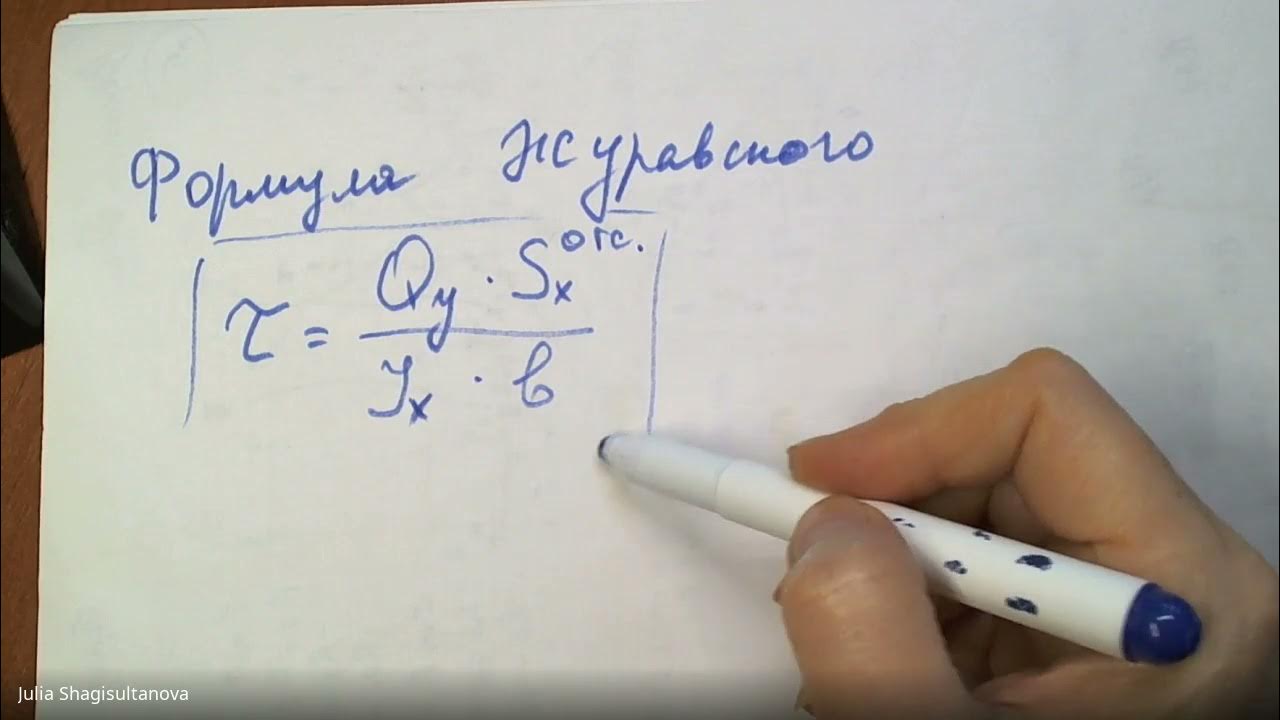 Формула Журавского
τ = (Qy · Sx^отс.) / (Jx · b)
Julia Shagisultanova